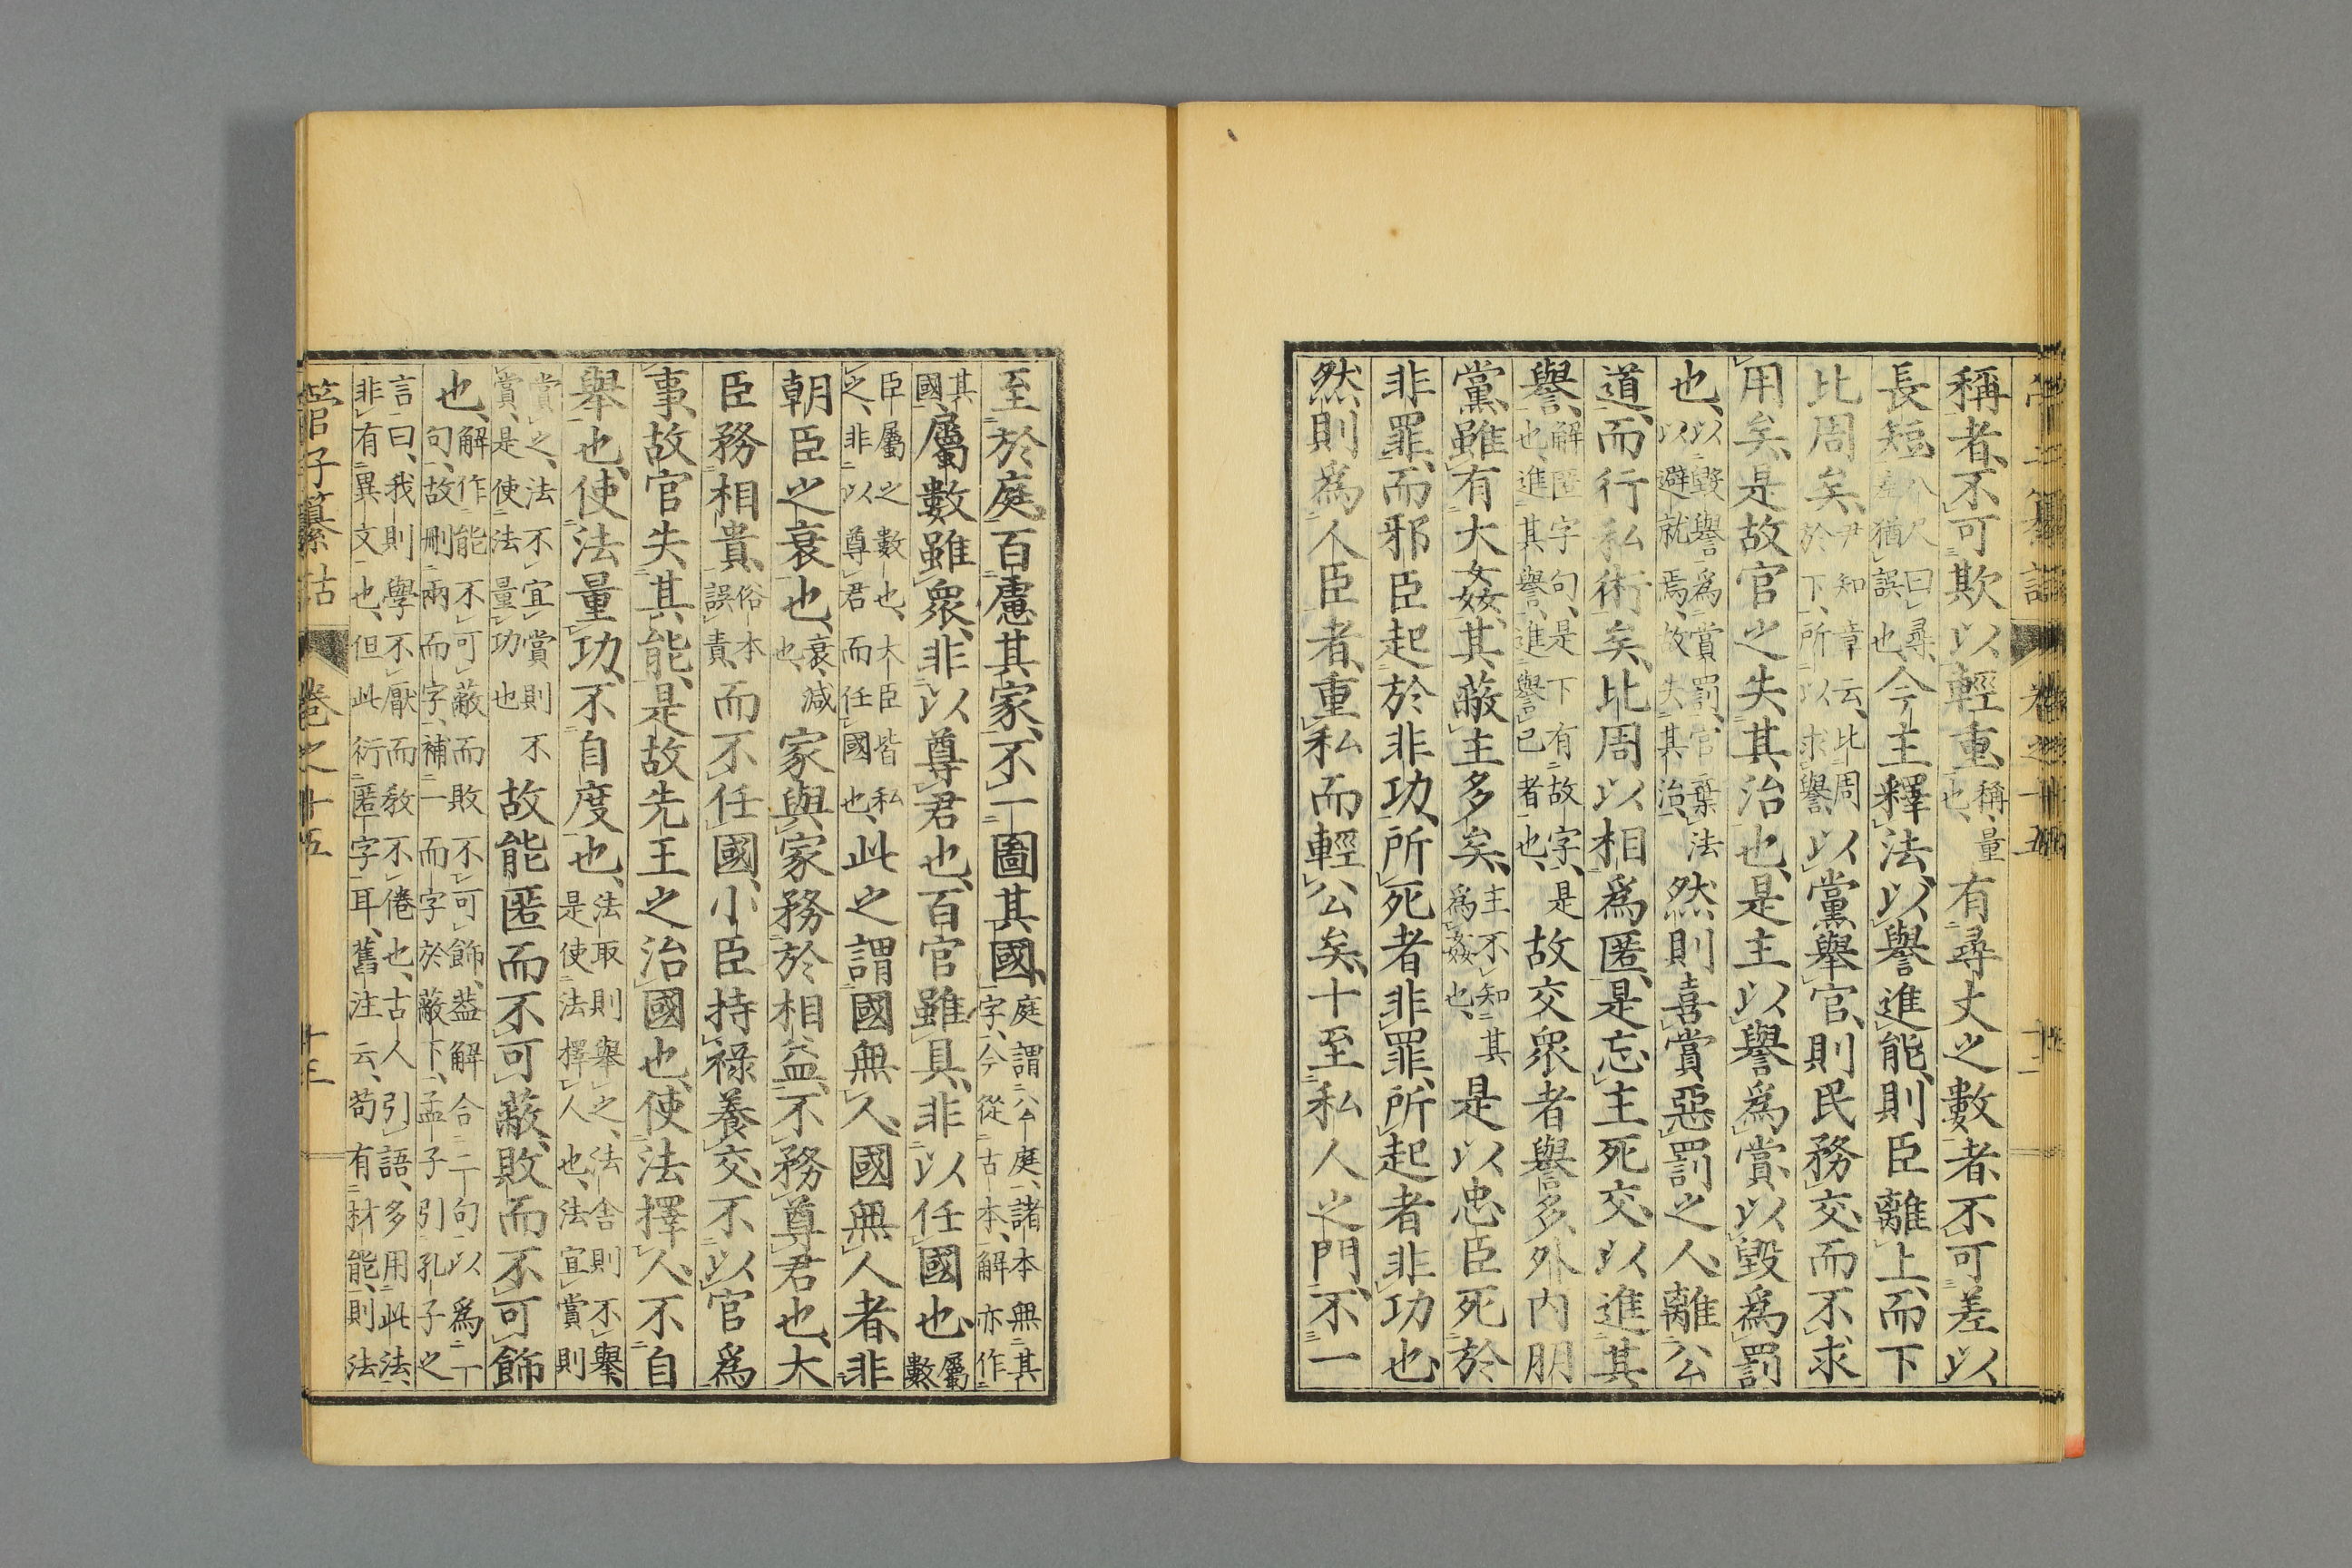 稱者、不可欺以輕重、稱、量也、有尋丈之數者、不可差以
長短、今主釋法、以譽進能、則臣離上、而下
比周矣、尹知章云、比周於下、所以求譽、以黨舉官、則民務交、而不求
用矣、是故官之失其治也、是主以譽爲賞、以毀爲罰
也、以毀譽爲賞罰、官棄法以避就焉、故失其治、然則喜賞惡罰之人、離公
道、而行私術矣、比周以相爲匿、是忘主死交、以進其
譽、解匿字句、是下有故字、是也、進其譽、進譽已者也、故交眾者譽多、外內朋
黨、雖有大姦、其蔽主多矣、主不知其爲姦也、是以忠臣死於
非罪、而邪臣起於非功、所死者非罪、所起者非功也、
然則爲人臣者、重私而輕公矣、十至私人之門、不一
至於庭、百慮其家、不一圖其國、庭謂公庭、諸本無其字、今從古本、解亦作
其國屬數雖眾、非以尊君也、百官雖具、非以任國也、屬數
臣屬之數也、大臣皆私之、非以尊君而任國也、此之謂國無人、國無人者、非
朝臣之衰也、衰、減也、家與家務於相益、不務尊君也、大
臣務相貴、俗本誤責、而不任國、小臣持祿養交、不以官爲
事、故官失其能、是故先王之治國也、使法擇人、不自
舉也、使法量功、不自度也、法取則舉之、法舍則不舉、是使法擇人也、法宜賞則
賞之、法不宜賞則不賞、是使法量功也故能匿而不可蔽、敗而不可飾
也、解作能不可蔽而敗不可飾、蓋解合二句以爲一句、故刪兩而字、補一而字於蔽下、孟子引孔子之
言曰、我則學不厭而教不倦也、古人引語、多用此法、非有異文也、但此衍匿字耳、舊注云、苟有材能、則法
管子纂詁 卷之十五 十三